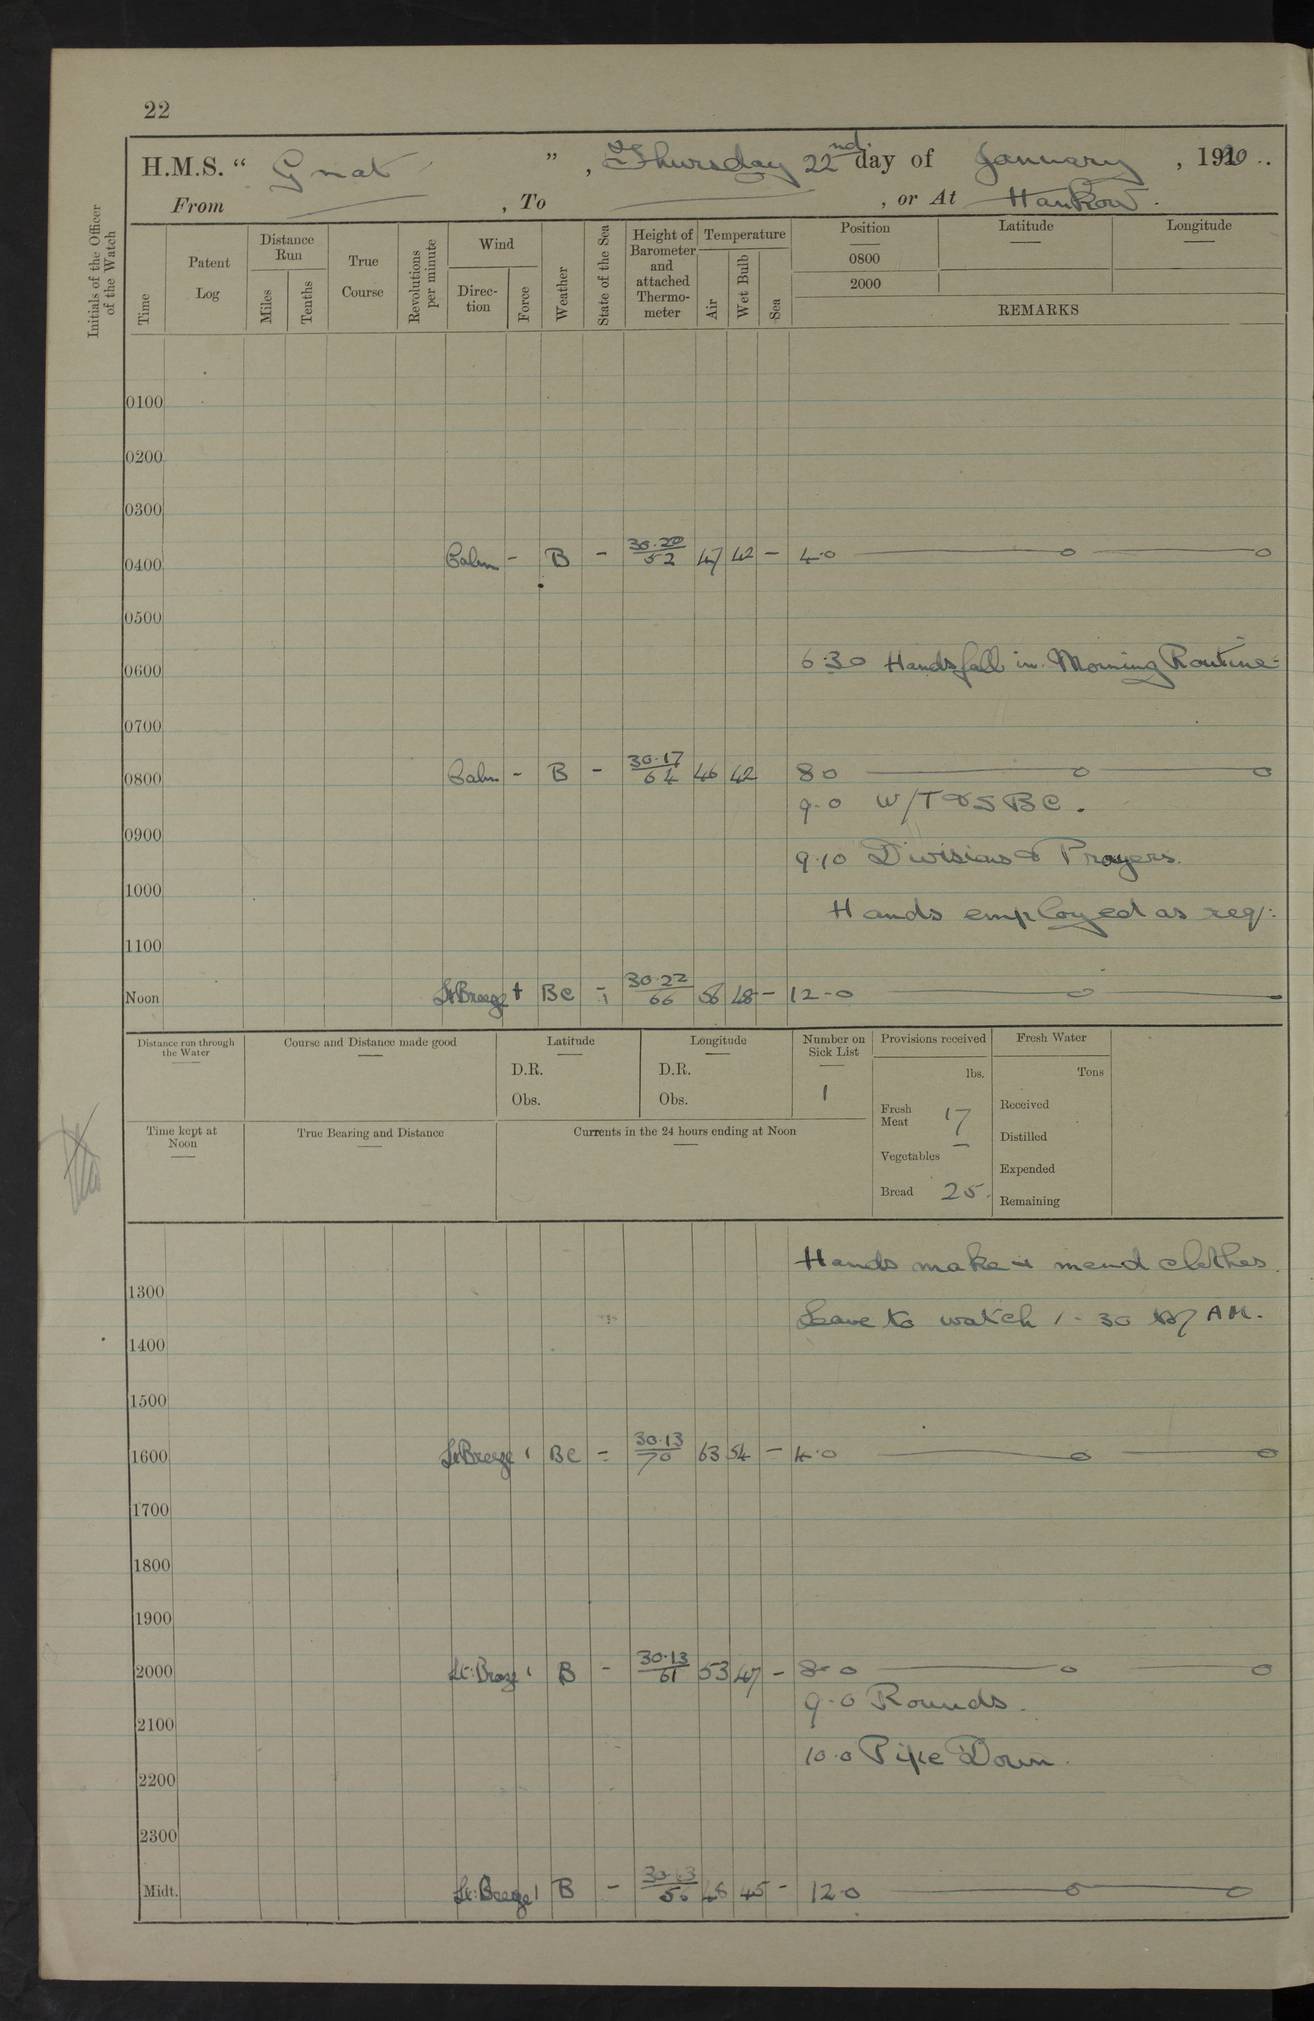 22
H.M.S. “ Gnat ” , Thursday 22nd day of January , 1920 ..
From , To , or At Hankow .
Initials of the Officer of the Watch
Time
Patent Log
Distance Run
Miles
Tenths
True Course
Revolutions per minute
Wind
Direction
Force
Weather
State of the Sea
Height of Barometer and attached Thermometer
Temperature
Air
Wet Bulb
Sea
Position
0800
2000
Latitude
Longitude
REMARKS
0100
0200
0300
0400 Calm - B - 30.20 52 47 42 - 4.0
0500
0600 6.30 Hands fall in. Morning Routine
0700
0800 Calm - B - 30.17 64 46 42 8 0
9.0 W/T & S B C.
0900
9.10 Divisions & Prayers.
1000
Hands employed as req:
1100
Noon Lt Breeze BC - 30.22 66 56 48 - 12-0
Distance run through the Water
Course and Distance made good
Latitude
D.R.
Obs.
Longitude
D.R.
Obs.
Number on Sick List
1
Provisions received
lbs.
Fresh Meat 17
Vegetables -
Bread 25.
Fresh Water
Tons
Received
Distilled
Expended
Remaining
Time kept at Noon
True Bearing and Distance
Currents in the 24 hours ending at Noon
Hands make & mend clothes.
1300
Leave to watch 1-30 to 7 AM.
1400
1500
1600 Lt Breeze 1 BC - 30.13 70 63 54 - 4.0
1700
1800
1900
2000 Lt: Breeze 1 B - 30.13 61 53 47 - 8-0
9.0 Rounds.
2100
10.0 Pipe Down.
2200
2300
Midt. Lt: Breeze 1 B - 30.13 48 45 - 12.0